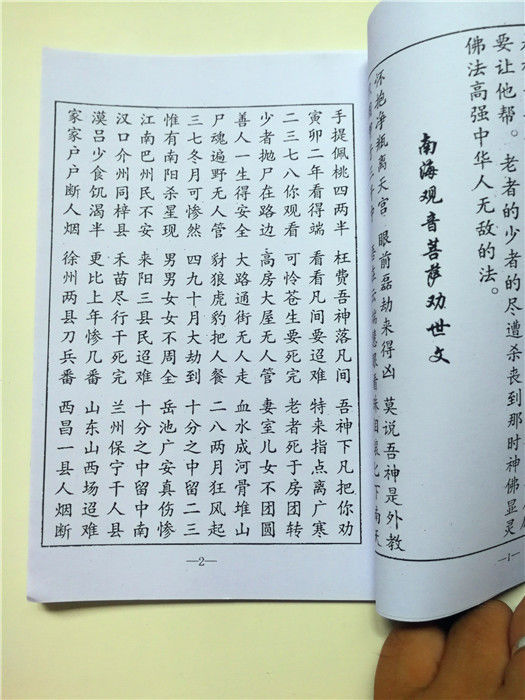 要让他帮。老者的少者的尽遭杀丧到那时神佛显灵
佛法高强中华人无敌的法。
南海观音菩萨劝世文
怀抱净瓶离天宫 眼前磊劫来得凶 莫说吾神是外教
—1—
手提佩桃四两半 枉费吾神落凡间 吾神下凡把你劝
寅卯二年看得端 看看凡间要迢难 特来指点离广寒
二三七八你观看 可怜苍生要死完 老者死于房团转
少者抛尸在路边 高房大屋无人管 妻室儿女不团圆
善人一生得安全 大路通街无人走 血水成河骨堆山
尸魂遍野无人管 豺狼虎豹把人餐 二八两月狂风起
三七冬月可惨然 四九十月大劫到 十分之中留二三
惟有南阳杀星现 男男女女不周全 岳池广安真伤惨
江南巴州民不安 来阳三县民迢难 十分之中留中南
汉口介州同梓县 禾苗尽行干死完 兰州保宁干人县
漠吕少食饥渴半 更比上年惨几番 山东山西场迢难
家家户户断人烟 徐州两县刀兵番 西昌一县人烟断
—2—